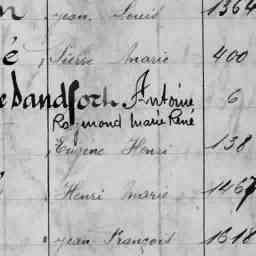 Jean Louis 1364
é Pierre Marie 400
e Dandfoch Antoine 6
Raymond Marie René
Eugène Henri 138
Henri Marie 1467
Jean François 1618